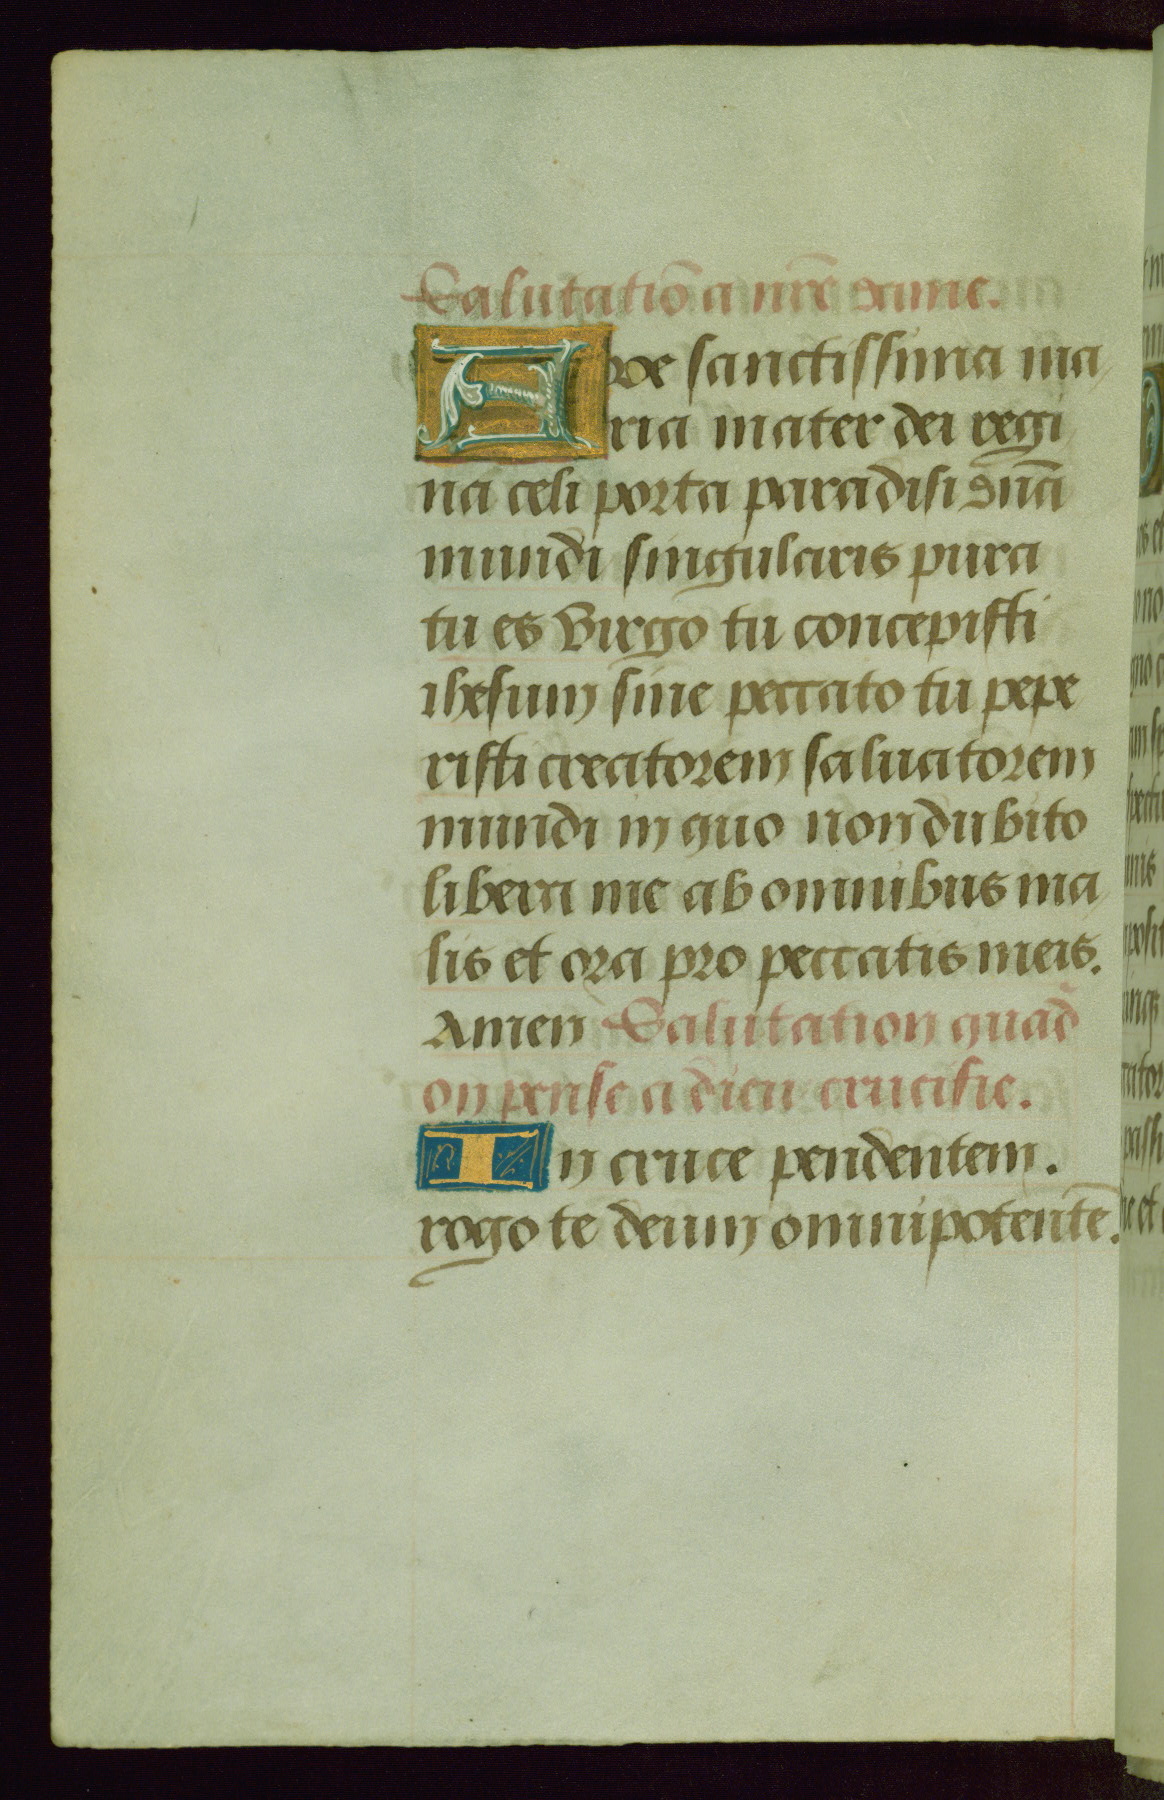 Salutatiō a nr̄e dame.
Ave sanctissima ma
ria mater dei regi
na celi porta paradisi dn̄a
mundi singularis pura
tu es Virgo tu concepisti
ihesum sine peccato tu pepe
risti creatorem saluatorem
mundi in quo non dubito
libera me ab omnibus ma
lis et ora pro peccatis meis.
Amen Salutation quād
on pense a dieu crucifie.
In cruce pendentem.
rogo te deum omnipotentē.